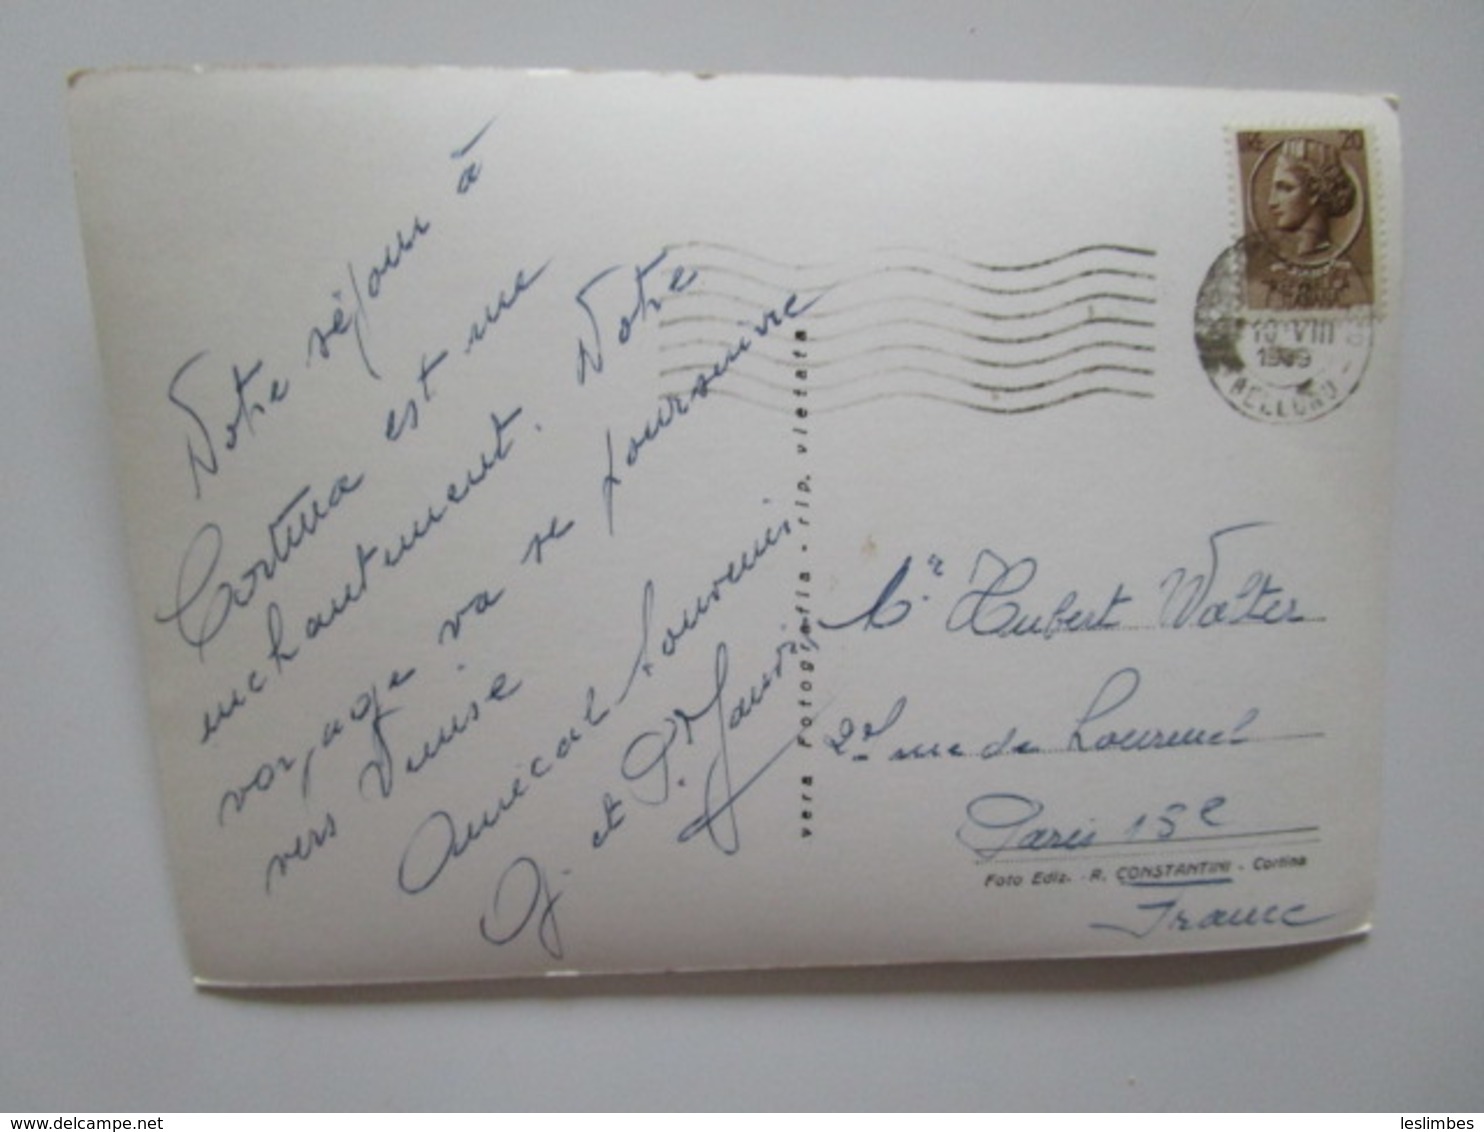 Notre séjour à
Cortina est un
enchantement. Notre
voyage va se poursuivre
vers Venise
Amical souvenir
G. et P. Maurin
vera fotografia - rip. vietata
LIRE 20
10 VIII
1959
BELLUNO
Mr Hubert Walter
rue de Lourmel
Paris 15e
Foto Ediz. - R. CONSTANTINI - Cortina
France
leslimbes